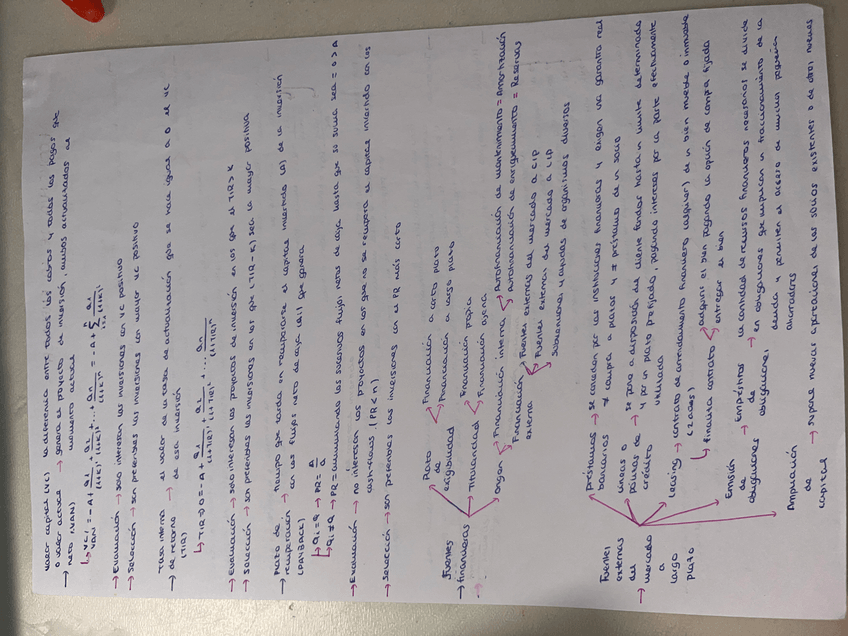 valor capital (VC) la diferencia entre todos los cobros y todos los pagos que
→ o valor actual → genera el proyecto de inversión, ambos actualizados al
neto (VAN) momento actual
↳ VC / VAN = -A + Q1/(1+K)^1 + Q2/(1+K)^2 + ... + Qn/(1+K)^n = -A + Σ
→ Evaluación → solo interesan las inversiones con VC positivo
→ Selección → son preferibles las inversiones con mayor VC positivo
Tasa interna el valor de la tasa de actualización que se hace igual a 0 el VC
→ de retorno → de esa inversión
(TIR)
↳ TIR → 0 = -A + Q1/(1+TIR)^1 + Q2/(1+TIR)^2 ... Qn/(1+TIR)^n
→ Evaluación → solo interesan los proyectos de inversión en los que el TIR > K
→ Selección → son preferibles las inversiones en los que (TIR-K) sea la mayor positiva
→ Plazo de tiempo que tarda en recuperarse el capital invertido (A) de la inversión
recuperación → en los flujos neto de caja (Qi) que genera
(PAYBACK)
↳ Qi = Q → PR = A/Q
Qi ≠ Q → PR = acumulando los sucesivos flujos netos de caja hasta que su suma sea = o > A
→ Evaluación → no interesan los proyectos en los que no se recupera el capital invertido en los
cash-flows (PR < n)
→ Selección → son preferibles las inversiones con el PR más corto
Fuentes
→ financieras
Plazo de exigibilidad
Financiación a corto plazo
Financiación a largo plazo
Titularidad
Financiación propia
Financiación ajena
Origen
Financiación interna
Autofinanciación de mantenimiento = Amortización
Autofinanciación de enriquecimiento = Reservas
Financiación externa
Fuentes externas del mercado a C/P
Fuentes externas del mercado a L/P
Subvenciones y ayudas de organismos diversos
Fuentes
externas
del
→ mercado
a
largo
plazo
Préstamos → se conceden por las instituciones financieras y exigen una garantía real
bancarios ≠ compra a plazos y ≠ préstamo de un socio
líneas o → se pone a disposición del cliente fondos hasta un límite determinado
pólizas de y por un plazo prefijado, pagando intereses por la parte efectivamente
crédito utilizada
Leasing → contrato de arrendamiento financiero (alquiler) de un bien mueble o inmueble
(2 años)
↳ finaliza contrato
adquirir el bien pagando la opción de compra fijada
entregar el bien
Emisión → Empréstitos la cantidad de recursos financieros necesarios se divide
de de → en obligaciones que implican un fraccionamiento de la
obligaciones obligaciones deuda y permiten el acceso de muchos pequeños
ahorradores
Ampliación
de → supone nuevas aportaciones de los socios existentes o de otros nuevos
capital